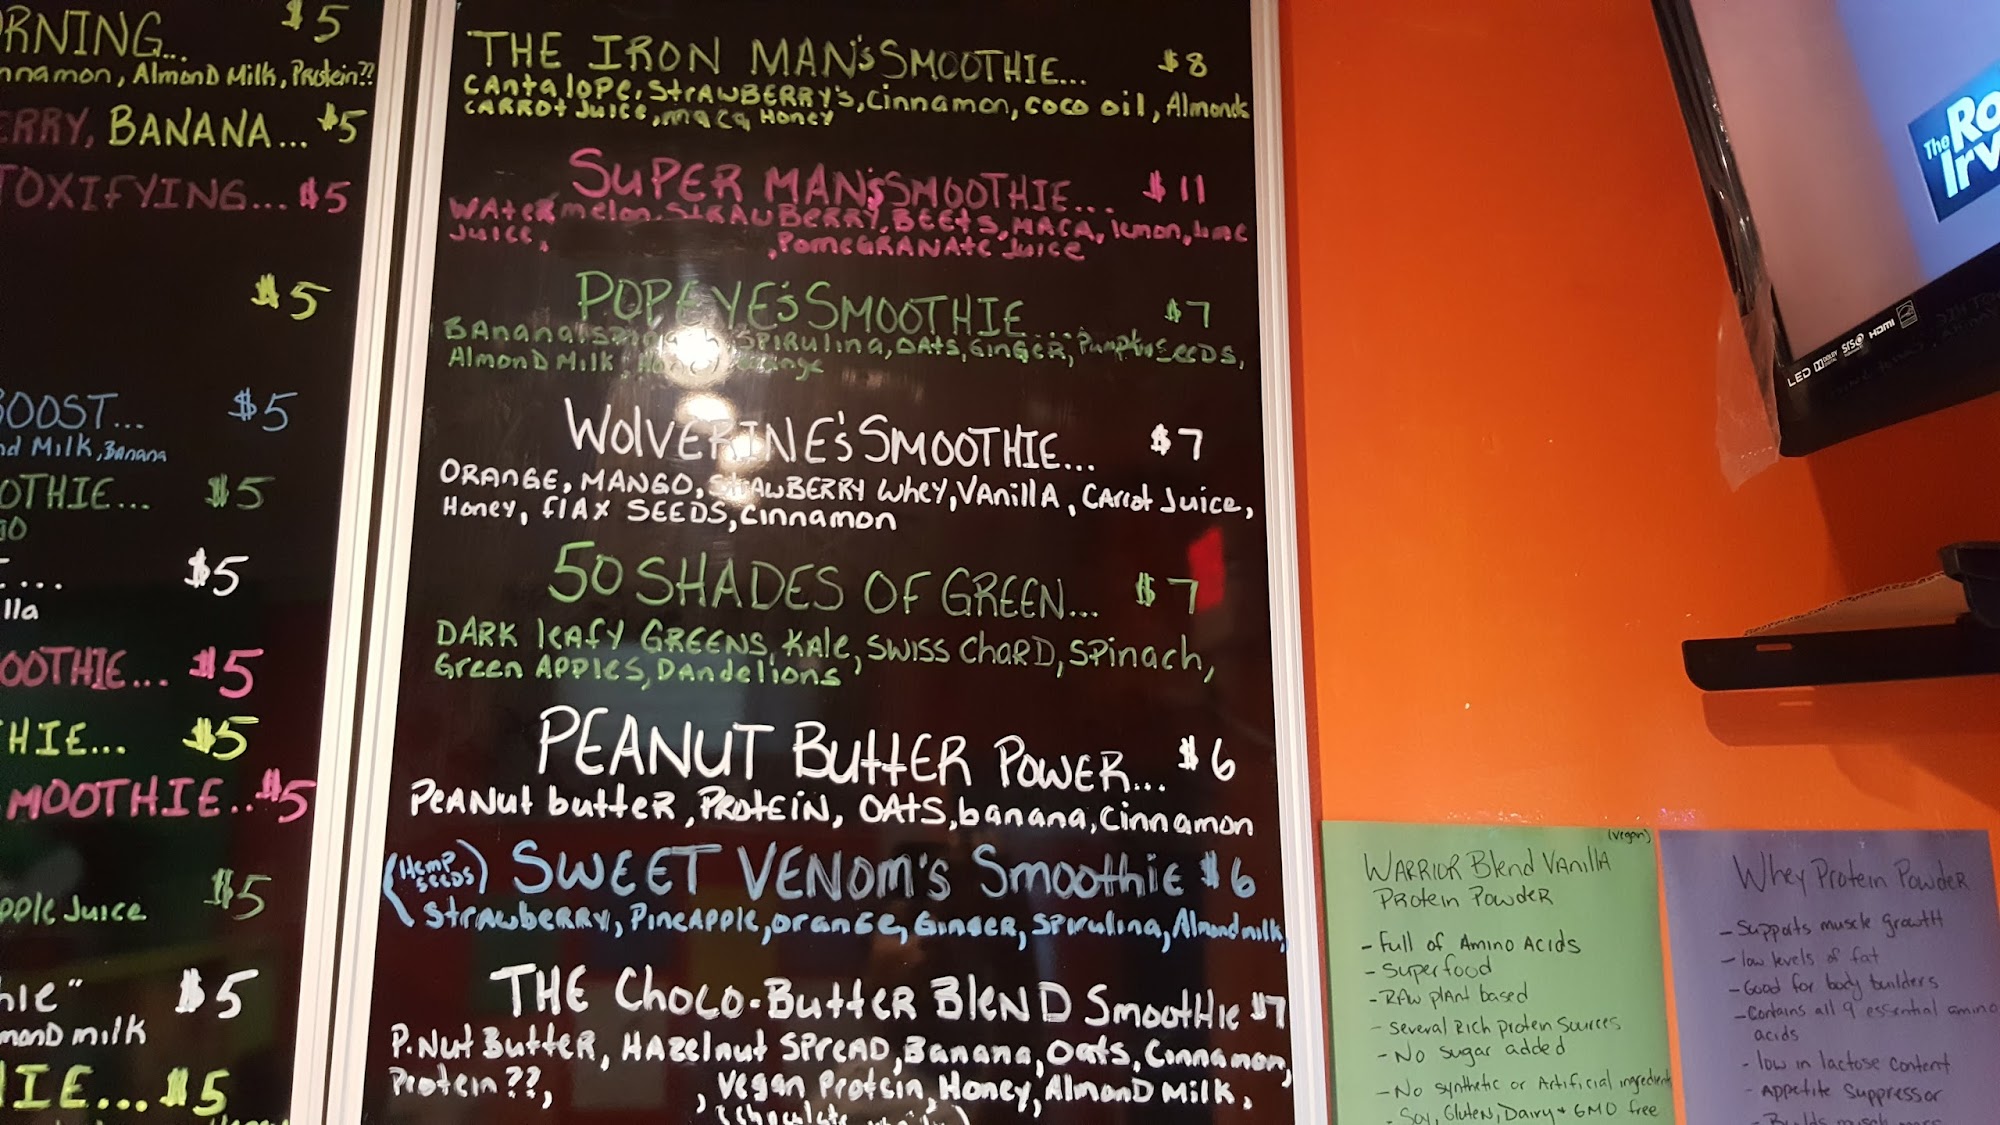 ORNING... $5
nnamon, AlmonD Milk, Protein??
ERRY, BANANA... $5
TOXIFYING... $5
$5
BOOST... $5
nd Milk, Banana
OTHIE... $5
... $5
lla
OOTHIE... $5
THIE... $5
MOOTHIE... $5
$5
pple Juice
hie" $5
monD milk
HIE... $5
THE IRON MAN's SMOOTHIE... $8
CANtalope, StRAWBERRY's, Cinnamon, coco oil, Almonds
CARROt Juice, maca, Honey
SUPER MAN's SMOOTHIE... $11
WAtermelon, STRAWBERRY, BEEtS, MACA, lemon, lime
Juice, ,PomeGRANAte Juice
POPEYE's SMOOTHIE... $7
BANana, SPIRulina, OAtS, GinGER, Pumpkin SEEDS,
AlmonD Milk, Honey, orange
WOLVERINE's SMOOTHIE... $7
ORANGE, MANGO, StRAWBERRY WHEY, VANillA, CARRot Juice,
Honey, flAX SEEDS, Cinnamon
50 SHADES OF GREEN... $7
DARK leafy GREENS, KAle, SWISS CHARD, SPinach,
Green APPles, DAndelions
PEANUT ButtER POWER... $6
PeANut butteR, PROtEIN, OAtS, banana, Cinnamon
(Hemp SEEDS) SWEET VENOM's Smoothie $6
StRAWbeRRY, PineAPPle, oranGE, GinGER, SPirulina, Almond milk,
THE CHOCO-BuTTER BlenD SmootHie $7
P.Nut ButtER, HAZelnut SPREAD, Banana, Oats, Cinnamon,
Protein??, , Vegan Protein, Honey, AlmonD Milk,
The Ro
Irv
LED DOLBY SRS HDMI
(vegan)
WARRIOR Blend Vanilla
Protein Powder
- Full of Amino Acids
- Superfood
- RAW plant based
- Several Rich protein Sources
- No sugar added
- No synthetic or Artificial ingredients
- Soy, Gluten, Dairy + GMO free
Whey Protein Powder
- Supports muscle growth
- low levels of fat
- Good for body builders
- Contains all 9 essential amino
acids
- low in lactose content
- Appetite Suppressor
- Builds muscle mass